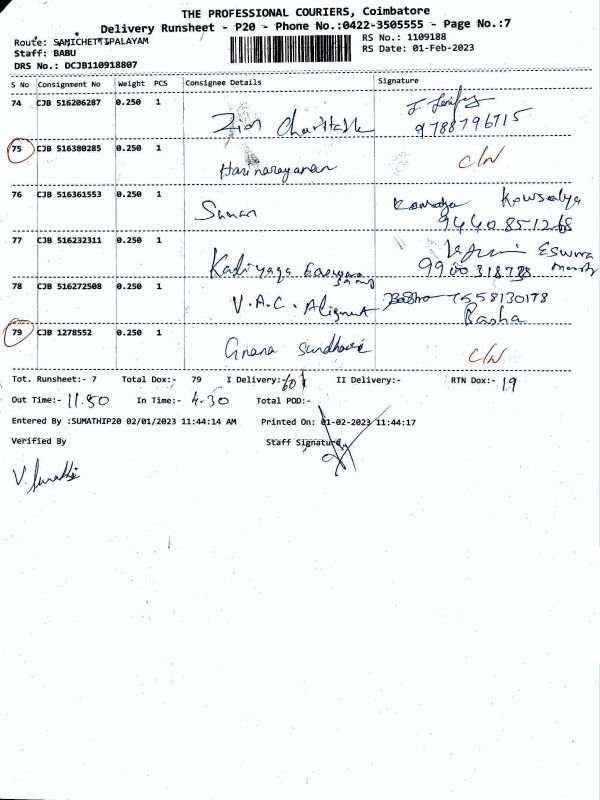 THE PROFESSIONAL COURIERS, Coimbatore
Delivery Runsheet - P20 - Phone No.:0422-3505555 - Page No.:7
Route: SAMICHETTIPALAYAM
RS No.: 1109188
Staff: BABU
RS Date: 01-Feb-2023
DRS No.: DCJB110918807
S No Consignment No Weight PCS Consignee Details Signature
74 CJB 516206287 0.250 1 Zion
9788796715
75 CJB 516380285 0.250 1 Harinarayanan C/N
76 CJB 516361553 0.250 1 Suman Kowsalya
77 CJB 516232311 0.250 1
78 CJB 516272508 0.250 1 V.A.C. 7558130178
Basha
79 CJB 1278552 0.250 1 Gnana C/N
Tot. Runsheet:- 7 Total Dox:- 79 I Delivery:- 60 II Delivery:- RTN Dox:- 19
Out Time:- 11.50 In Time:- 4.30 Total POD:-
Entered By :SUMATHIP20 02/01/2023 11:44:14 AM Printed On: 01-02-2023 11:44:17
Verified By Staff Signature